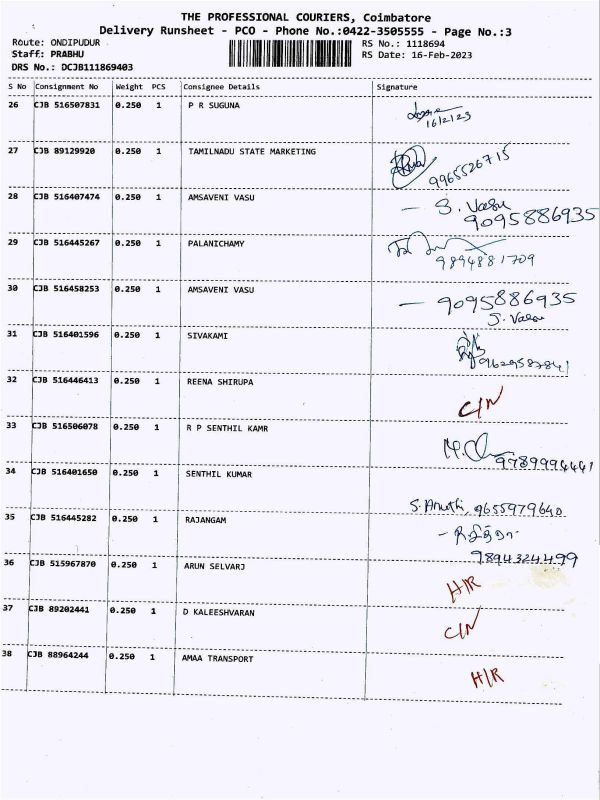 THE PROFESSIONAL COURIERS, Coimbatore
Delivery Runsheet - PCO - Phone No.:0422-3505555 - Page No.:3
Route: ONDIPUDUR RS No.: 1118694
Staff: PRABHU RS Date: 16-Feb-2023
DRS No.: DCJB111869403
S No Consignment No Weight PCS Consignee Details Signature
26 CJB 516507831 0.250 1 P R SUGUNA
16/2/23
27 CJB 89129920 0.250 1 TAMILNADU STATE MARKETING
9965526715
28 CJB 516407474 0.250 1 AMSAVENI VASU - S. Vasu
9095886935
29 CJB 516445267 0.250 1 PALANICHAMY
9894881709
30 CJB 516458253 0.250 1 AMSAVENI VASU - 9095886935
S. Vasu
31 CJB 516401596 0.250 1 SIVAKAMI
32 CJB 516446413 0.250 1 REENA SHIRUPA C/N
33 CJB 516506078 0.250 1 R P SENTHIL KAMR
9789994441
34 CJB 516401650 0.250 1 SENTHIL KUMAR
S. Aruthi, 9655979640
35 CJB 516445282 0.250 1 RAJANGAM
9894324499
36 CJB 515967870 0.250 1 ARUN SELVARJ H/R
37 CJB 89202441 0.250 1 D KALEESHVARAN C/N
38 CJB 88964244 0.250 1 AMAA TRANSPORT H/R